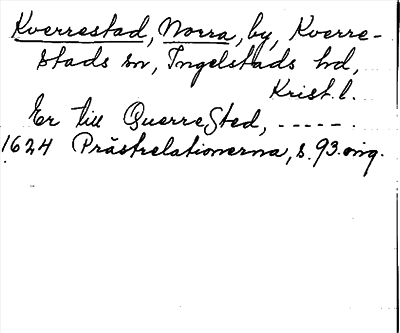 Kverrestad, Norra, by, Kverre-
stads sn, Ingelstads hd,
Krist. l.
Er till QuerreSted, -----.
1624 Prästrelationerna, s. 93. orig.